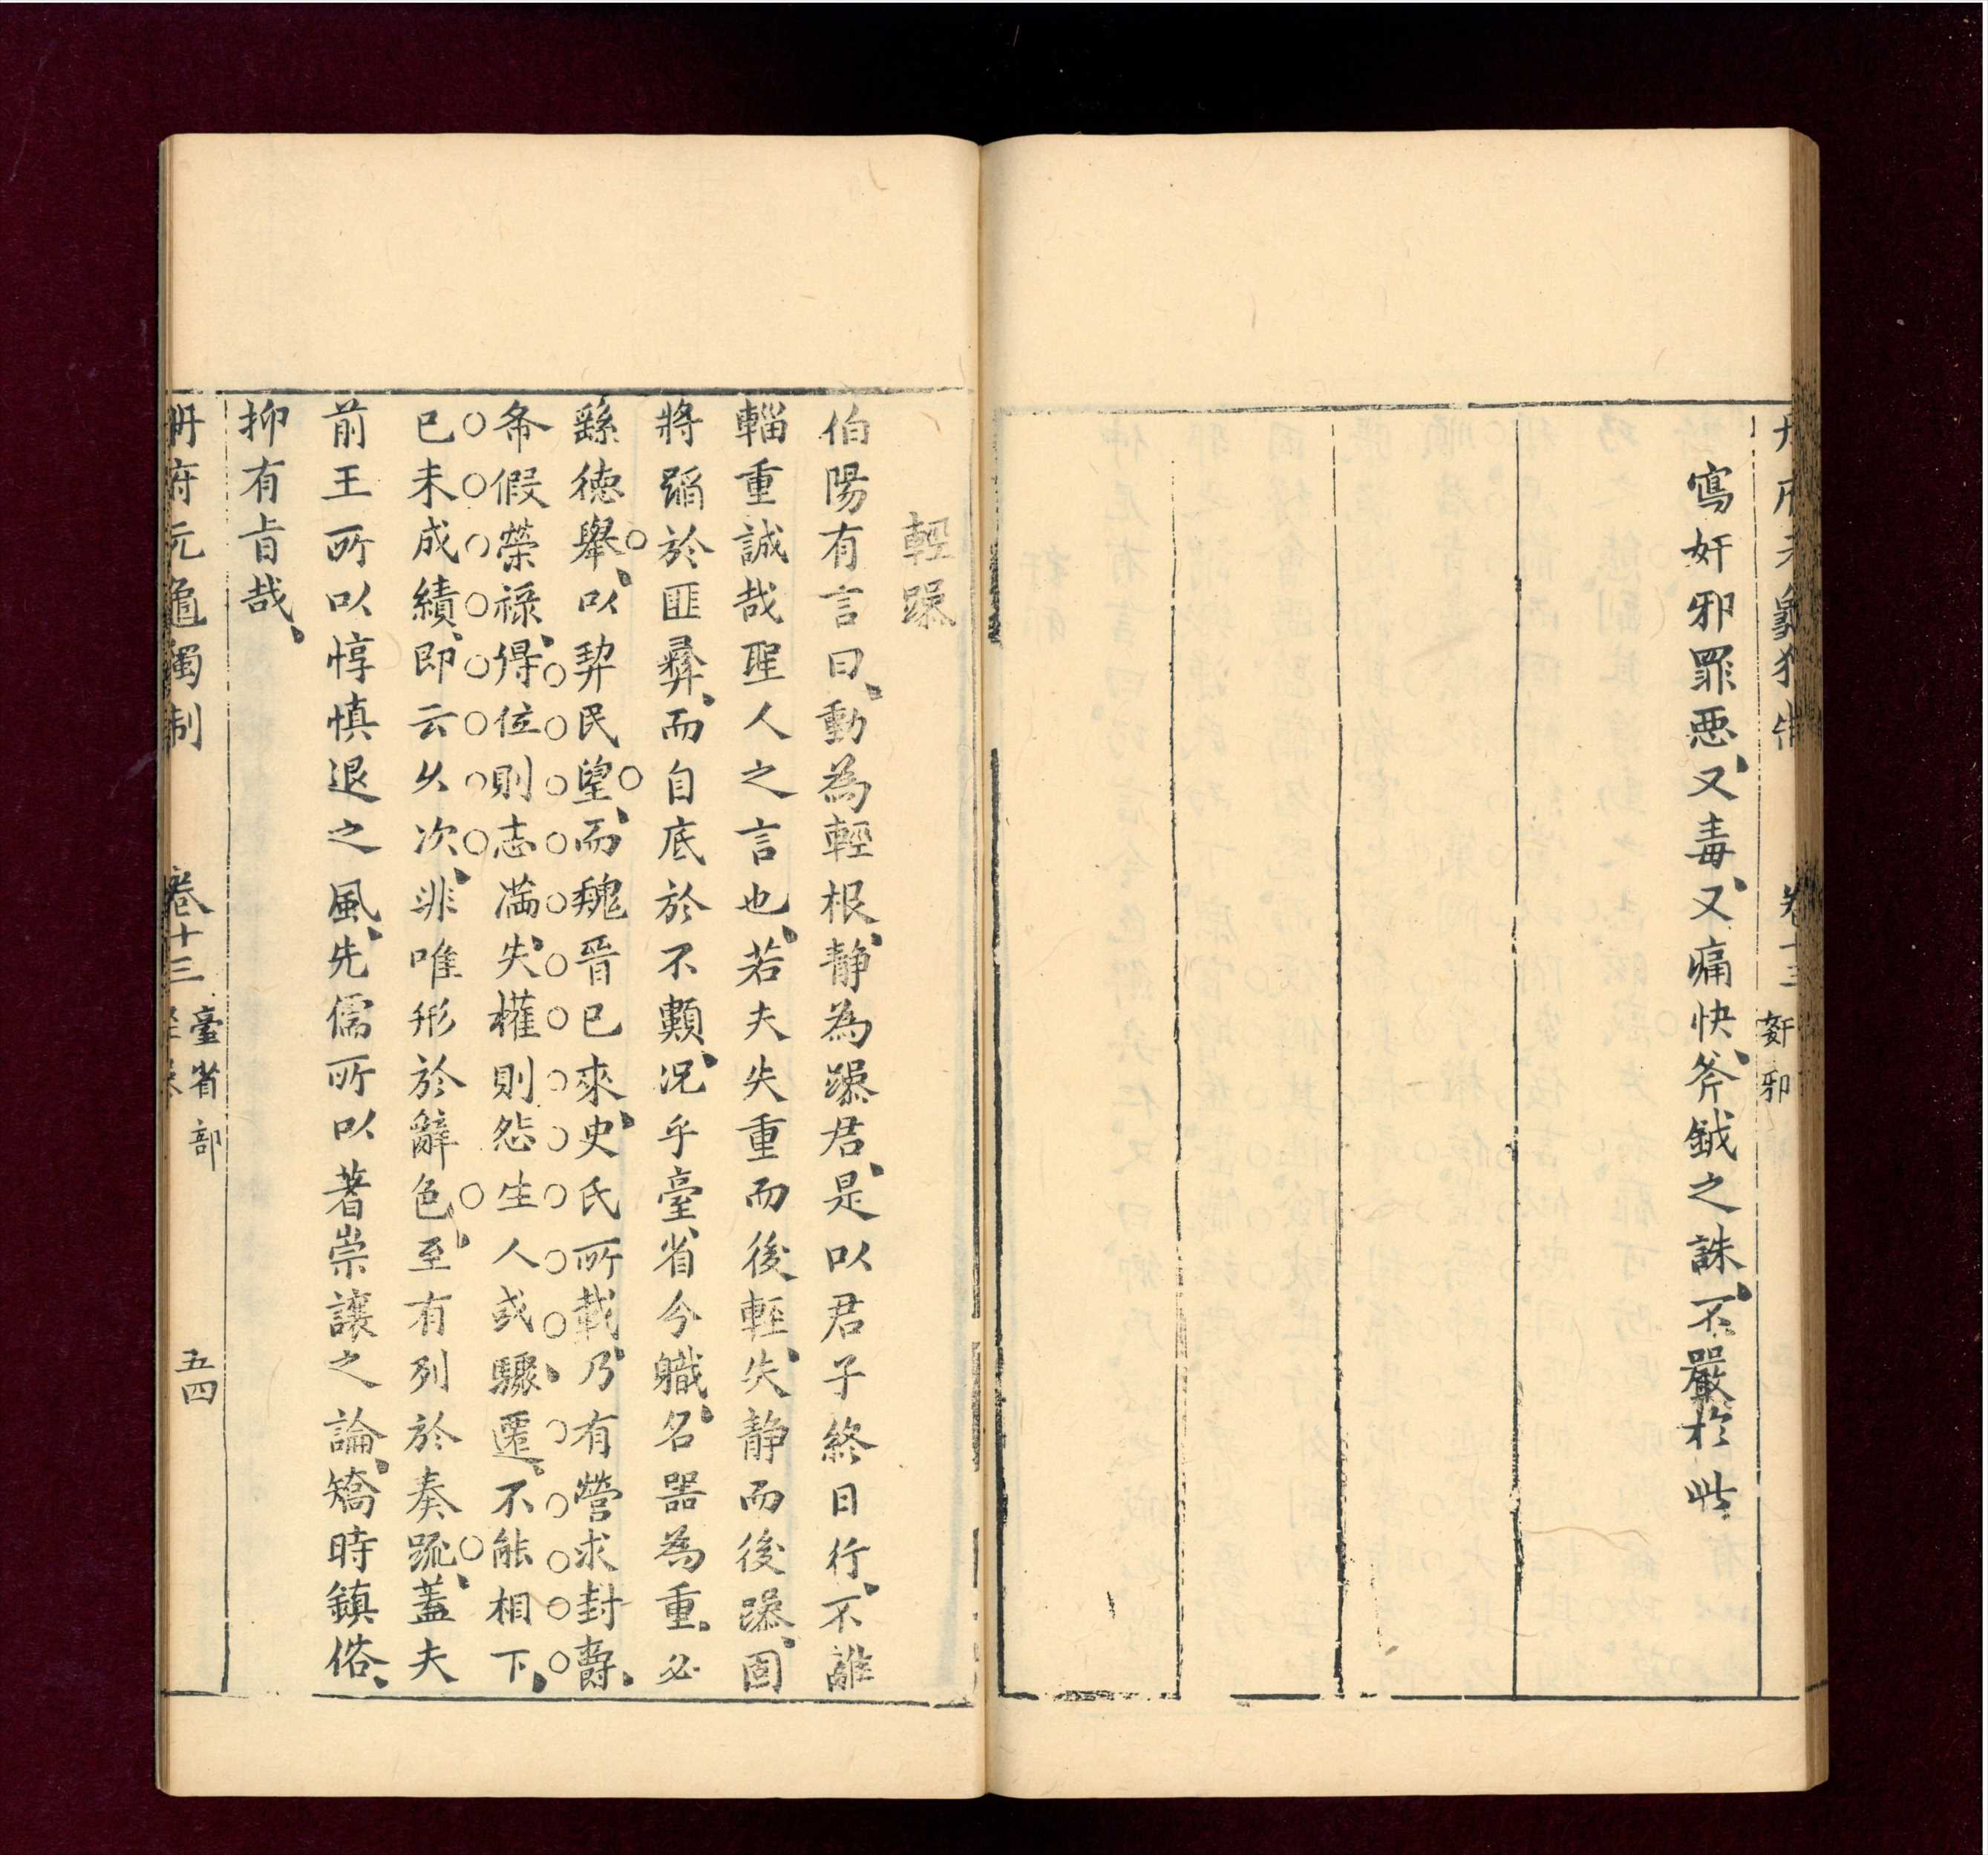 寫奸邪罪惡、又毒、又痛快、斧鉞之誅、不嚴於此、
輕躁
伯陽有言曰、動為輕根、静為躁君、是以君子終日行、不離
輜重誠哉聖人之言也、若夫失重而後輕、失静而後躁、固
將蹈於匪彝、而自底於不顯、況乎臺省今職、名器為重、必
繇徳舉、以契民望、而魏晉已來、史氏所載、乃有營求封爵、
希假榮祿、得位則志滿、失權則怨生人或驟遷、不能相下、
已未成績、即云久次、非唯形於辭色、至有列於奏䟽、蓋夫
前王所以惇慎退之風、先儒所以著崇讓之論、矯時鎮俗、
抑有旨哉、
冊府元龜獨制　卷十三　臺省部　五四